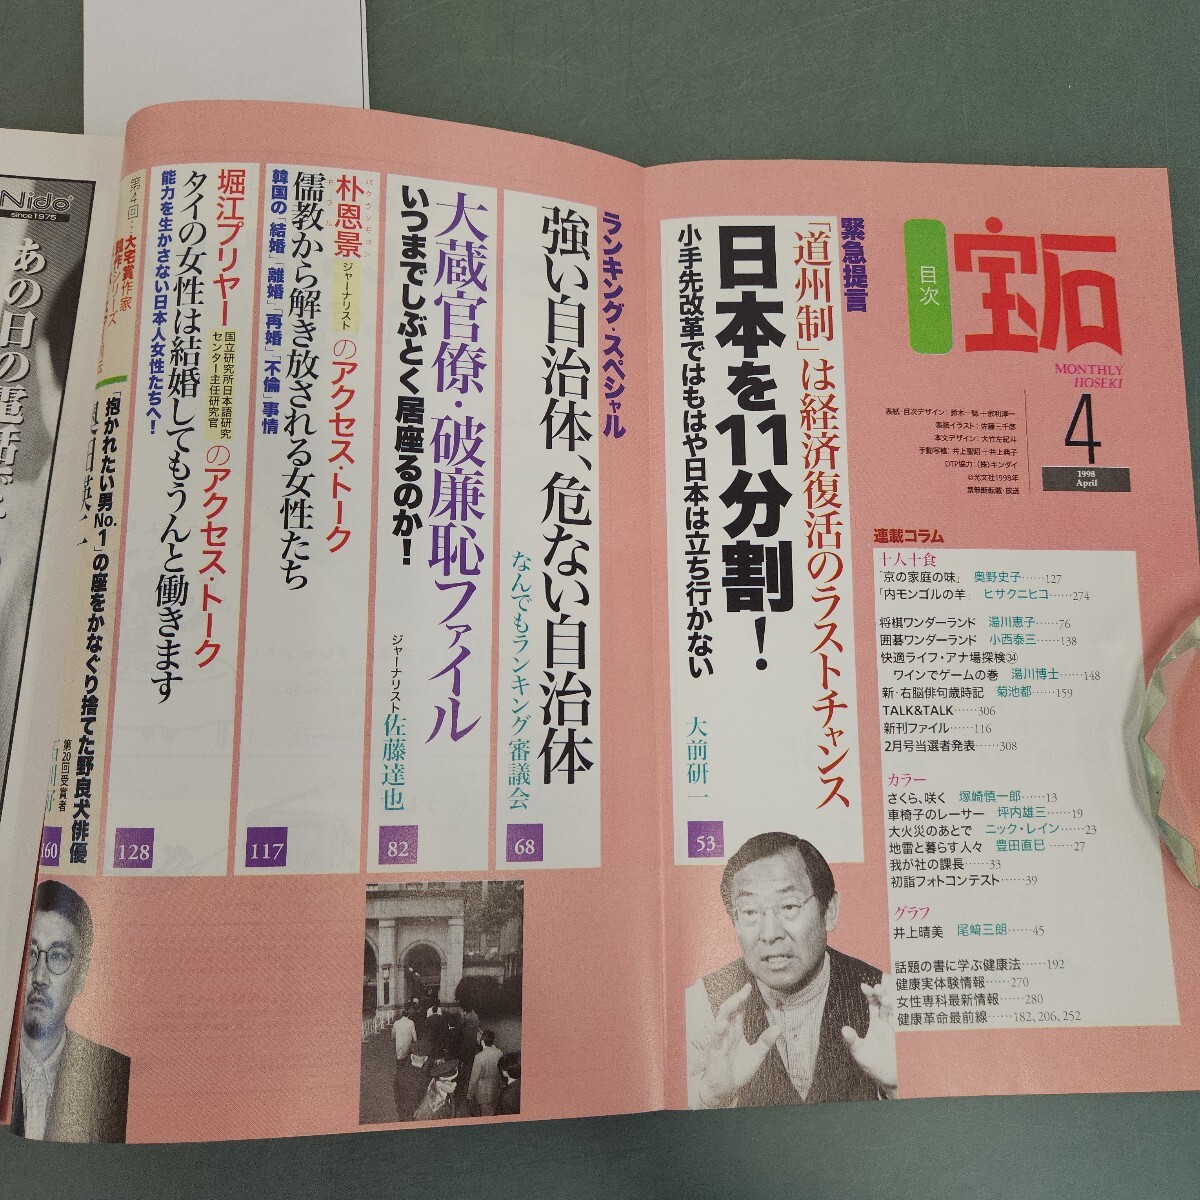 宝石
目次
MONTHLY
HOSEKI
4
1998
April
表紙・目次デザイン:鈴木一誌+宗利淳一
表紙イラスト:佐藤三千彦
本文デザイン:大竹左紀斗
手動写植:井上聖昭+井上典子
DTP協力:(株)キンダイ
©光文社1998年
禁無断転載・放送
連載コラム
十人十食
「京の家庭の味」 奥野史子……127
「内モンゴルの羊」 ヒサクニヒコ……274
将棋ワンダーランド 湯川恵子……76
囲碁ワンダーランド 小西泰三……138
快適ライフ・アナ場探検㉞
ワインでゲームの巻 湯川博士……148
新・右脳俳句歳時記 菊池都……159
TALK&TALK……306
新刊ファイル……116
2月号当選者発表……308
カラー
さくら、咲く 塚崎慎一郎……13
車椅子のレーサー 坪内雄三……19
大火災のあとで ニック・レイン……23
地雷と暮らす人々 豊田直巳……27
我が社の課長……33
初詣フォトコンテスト……39
グラフ
井上晴美 尾﨑三朗……45
話題の書に学ぶ健康法……192
健康実体験情報……270
女性専科最新情報……280
健康革命最前線……182、206、252
緊急提言
「道州制」は経済復活のラストチャンス
日本を11分割!
小手先改革ではもはや日本は立ち行かない
大前研一
53
ランキング・スペシャル
強い自治体、危ない自治体
なんでもランキング審議会
68
大蔵官僚・破廉恥ファイル
いつまでしぶとく居座るのか!
ジャーナリスト 佐藤達也
82
朴恩景 ジャーナリスト のアクセス・トーク
パクウンギョン
儒教から解き放される女性たち
モラル
韓国の「結婚」「離婚」「再婚」「不倫」事情
117
堀江プリヤー 国立研究所日本語研究センター主任研究官 のアクセス・トーク
タイの女性は結婚してもうんと働きます
能力を生かさない日本人女性たちへ!
128
第4回:大宅賞作家
「抱かれたい男No.1」の座をかなぐり捨てた野良犬俳優
第20回受賞者
160
Nido
since1975
あの日の電話